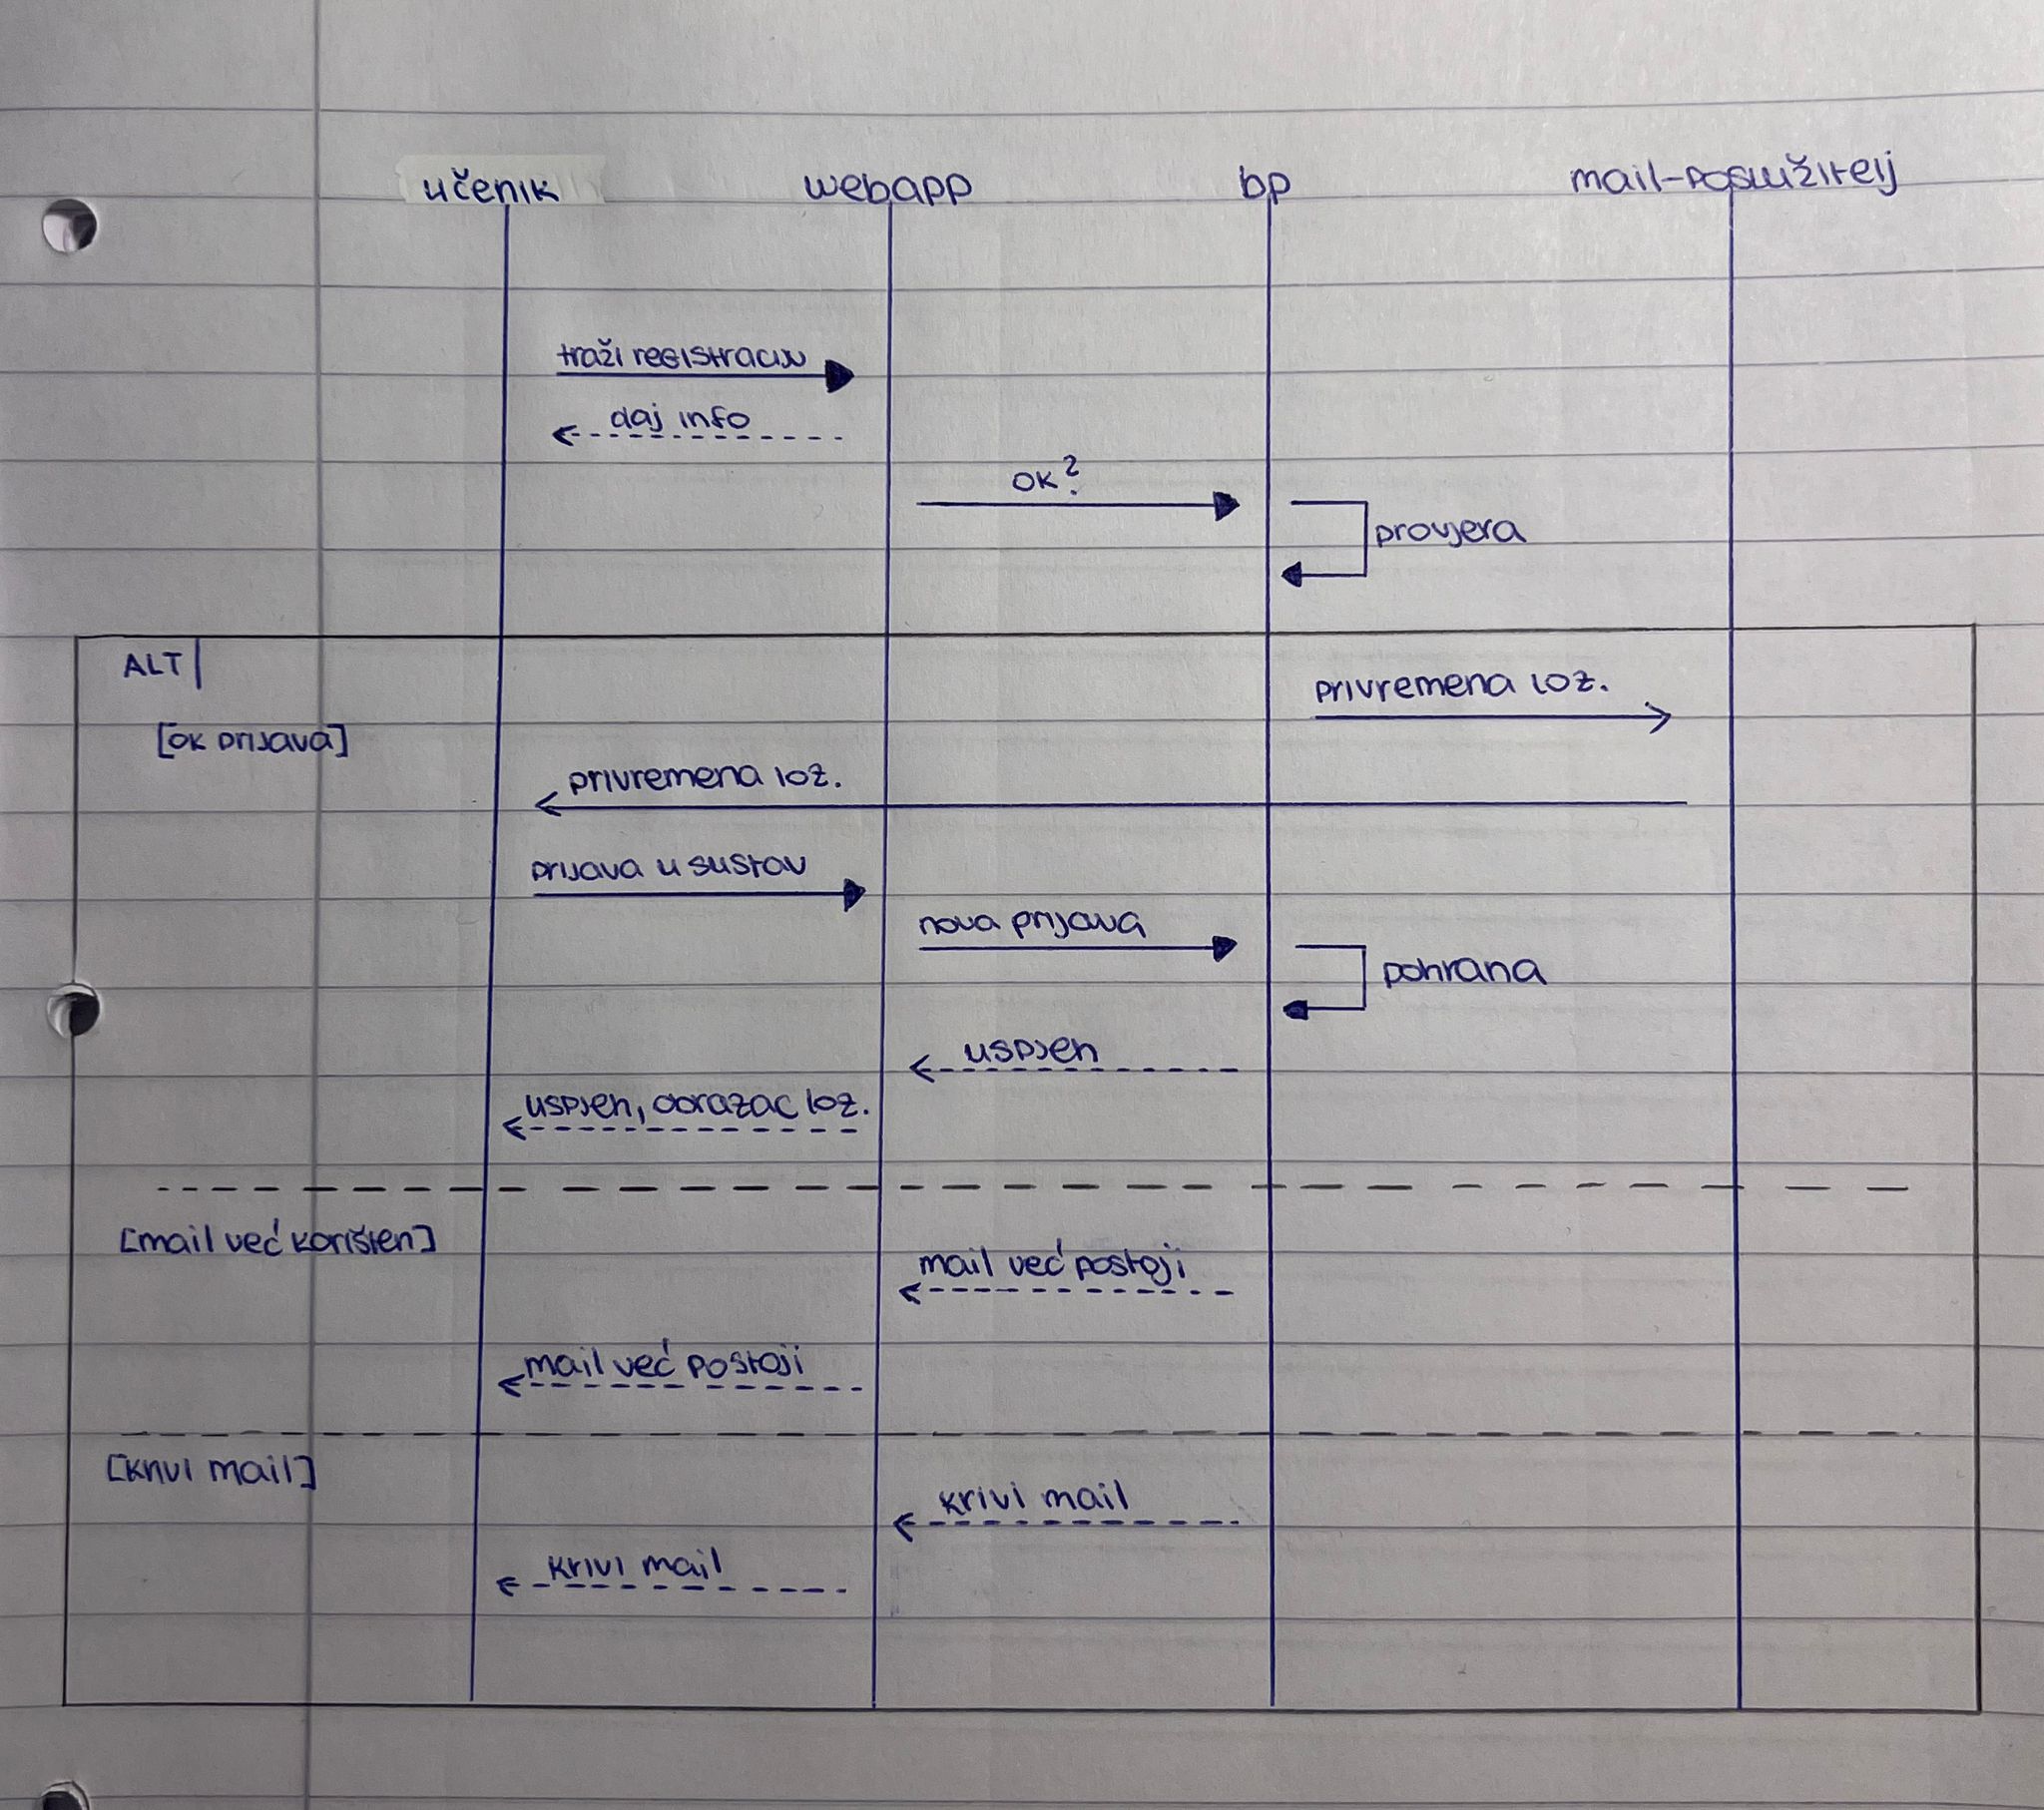 učenik webapp bp mail-poslužitelj
traži registraciju
daj info
ok?
provjera
ALT
privremena loz.
[ok prijava]
privremena loz.
prijava u sustav
nova prijava
pohrana
uspjeh
uspjeh, obrazac loz.
[mail već korišten]
mail već postoji
mail već postoji
[krivi mail]
krivi mail
krivi mail